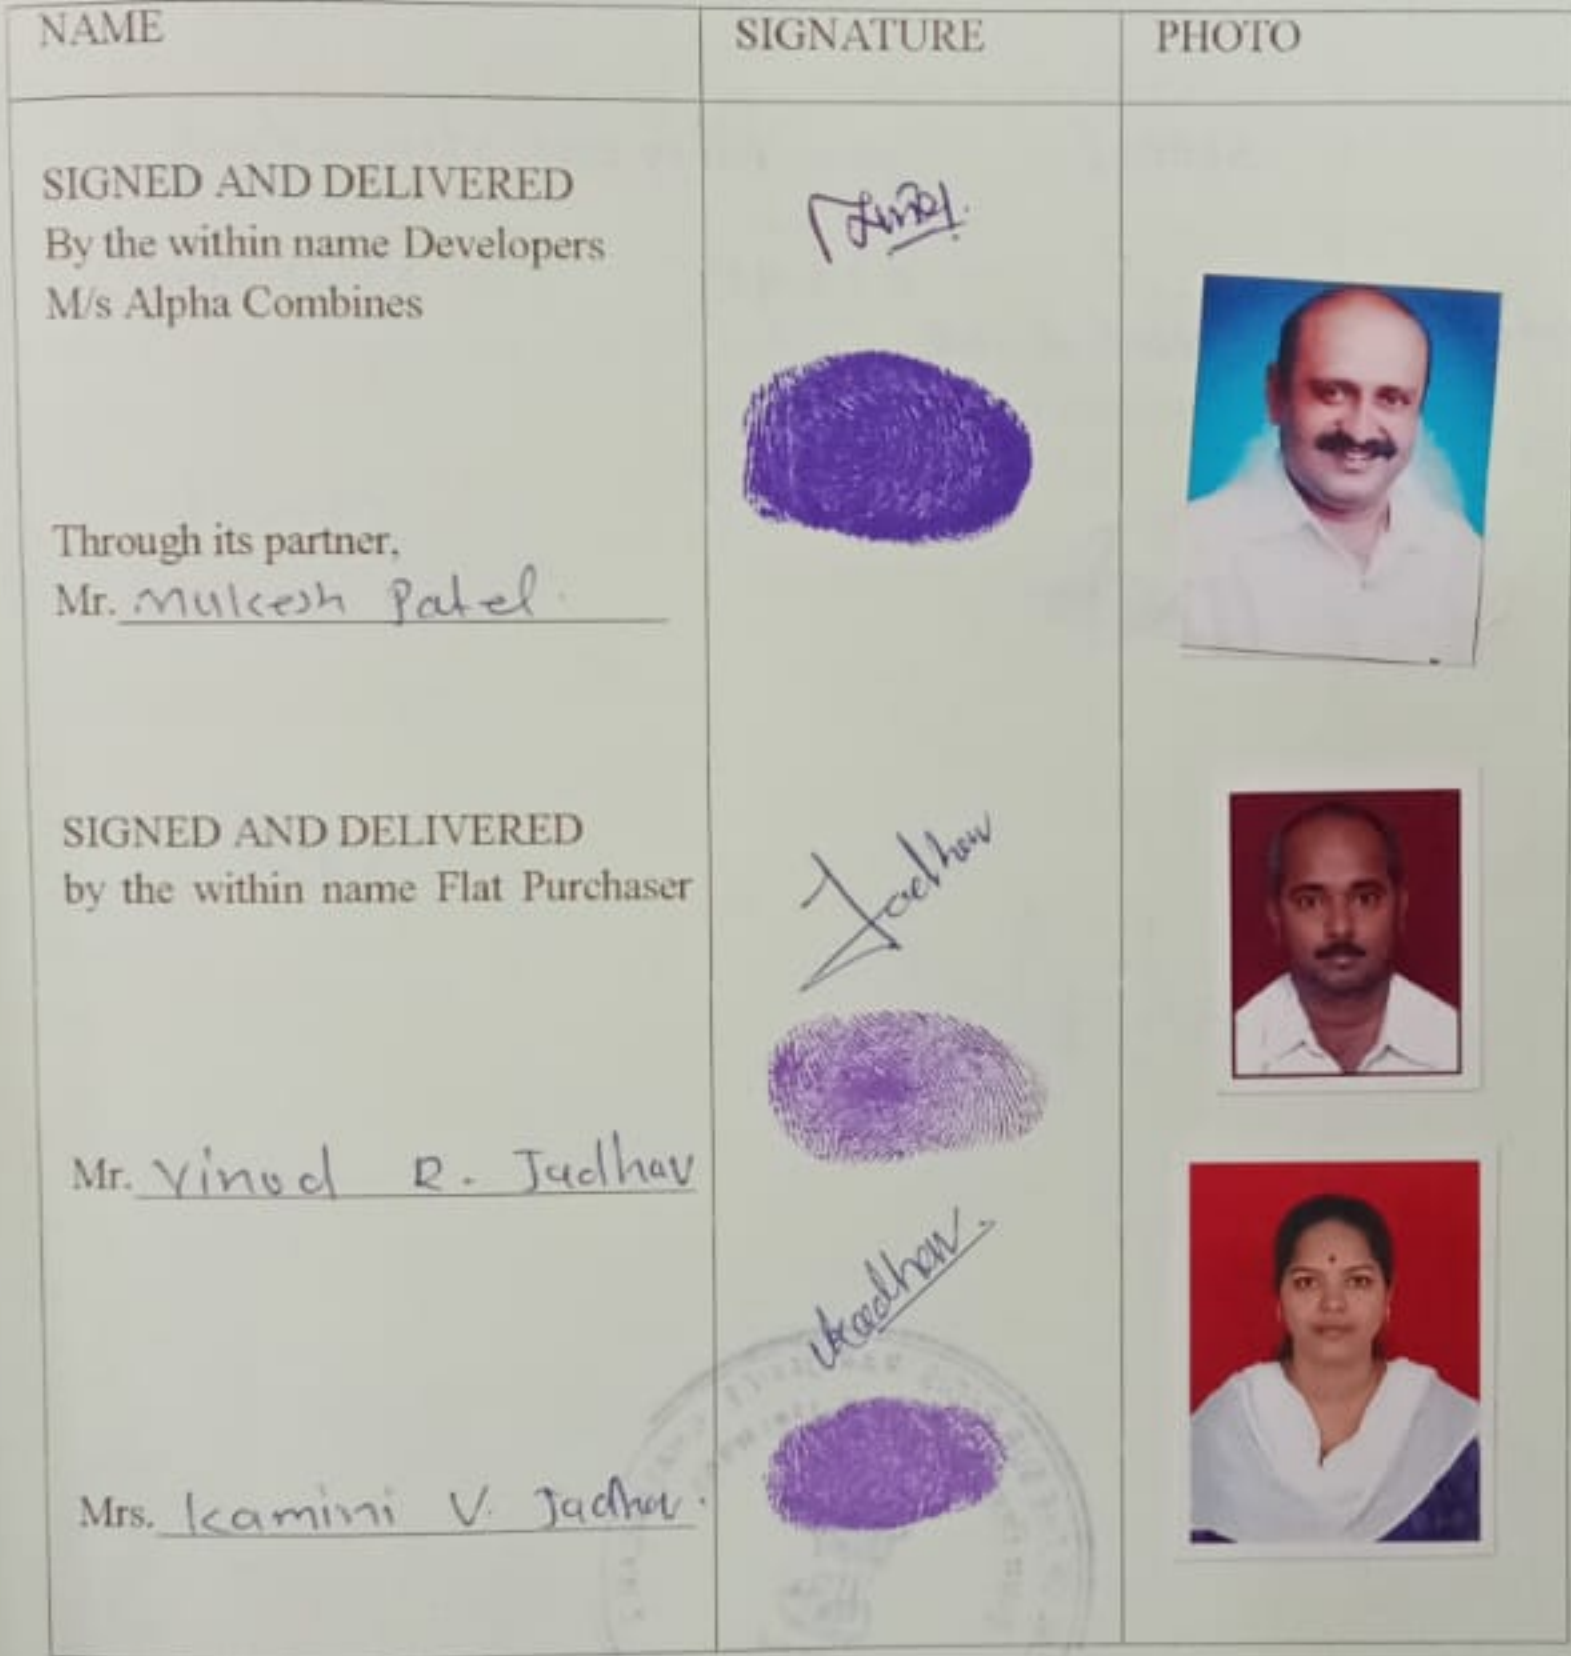 NAME
SIGNATURE
PHOTO
SIGNED AND DELIVERED
By the within name Developers
M/s Alpha Combines
Through its partner,
Mr. Mukesh Patel
SIGNED AND DELIVERED
by the within name Flat Purchaser
Jadhav
Mr. Vinod R. Jadhav
Mrs. Kamini V. Jadhav.